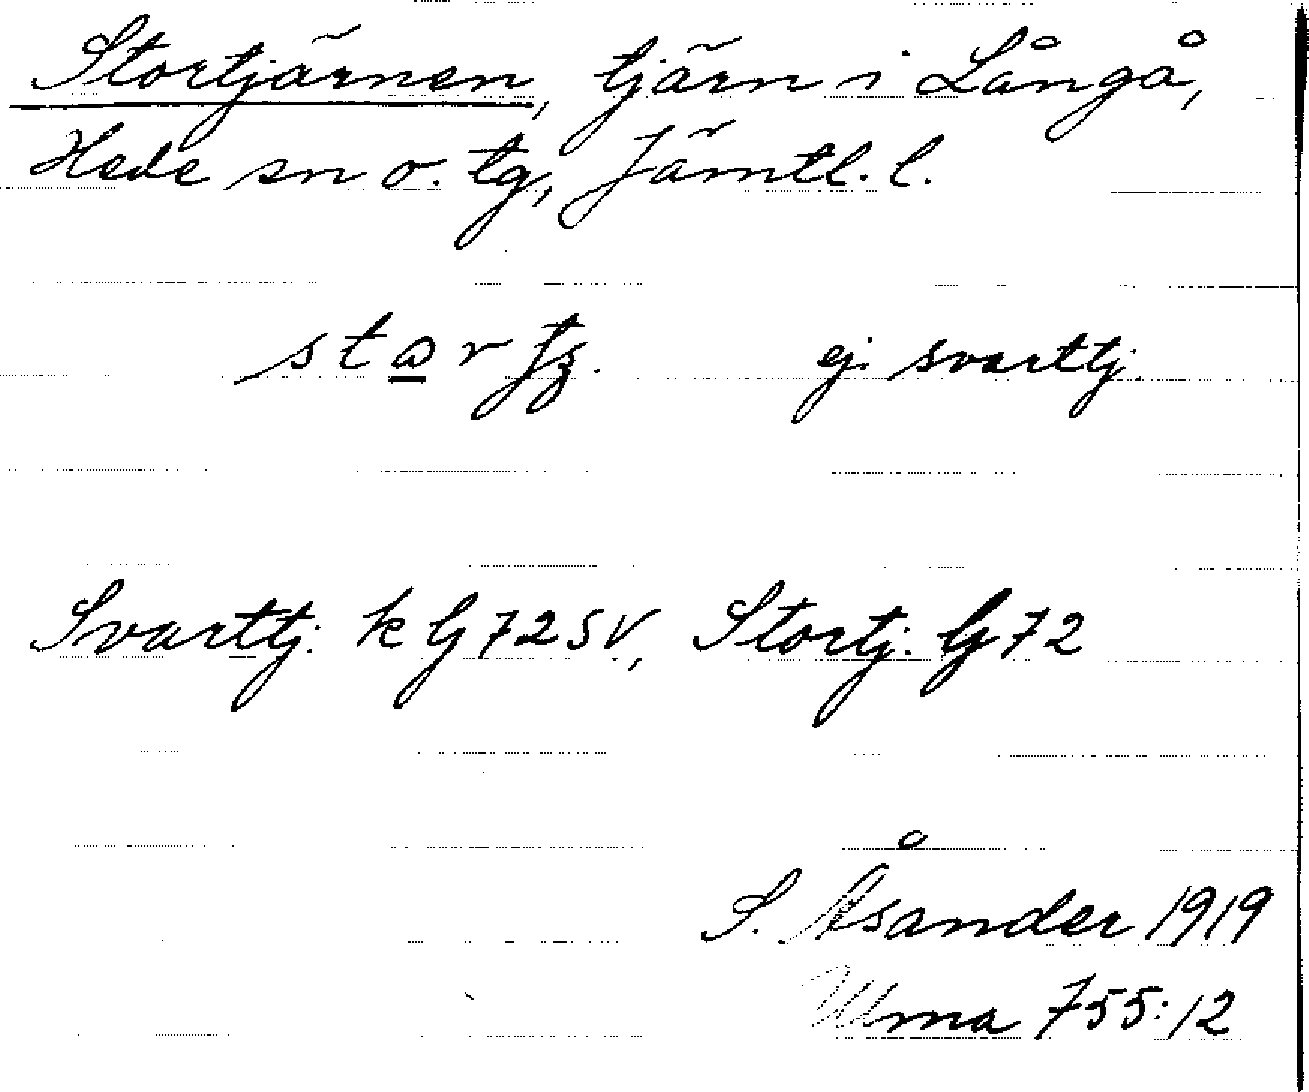 Stortjärnen, tjärn i Långå,
Hede sn o. tg, Jämtl. l.
ej. svarttj.
Svarttj: k Gj 72 SV, Stortj: Gj 72
S. Åsander 1919
Ulma 755:12